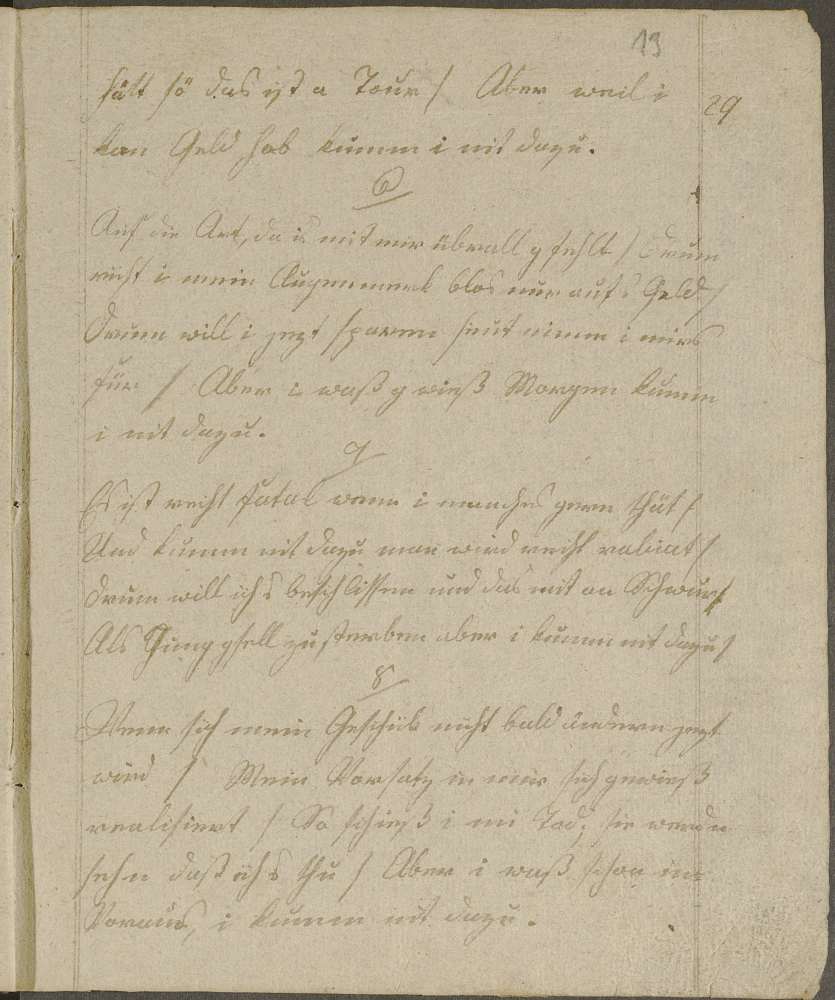 13
hätt sö das ist a Tour / Aber weil i
29
kan Geld hab kumm i nit dazu.
6
Auf die Art, da is mit mir überall gfehlt / Drum
richt i mein Augenmerk blos nur aufs Geld /
Drum will i jezt sparen heut nimm i mirs
für / Aber i waß gwieß Morgen kumm
i nit dazu.
7
Es ist recht fatal wenn i manches gern thät /
Und kumm nit dazu man wird recht rabiat /
Drum will ichs beschlissen und das mit an Schwur /
Als Junggsell zu sterben aber i kumm nit dazu /
8
Wenn sich mein Geschick nicht bald ändern jezt
wird / Mein Vorsatz in mir sich gewieß
realisiert / So schieß i mi Tod, sie werdn
sehn daß ichs thu / Aber i waß schon im
Voraus, i kumm nit dazu.